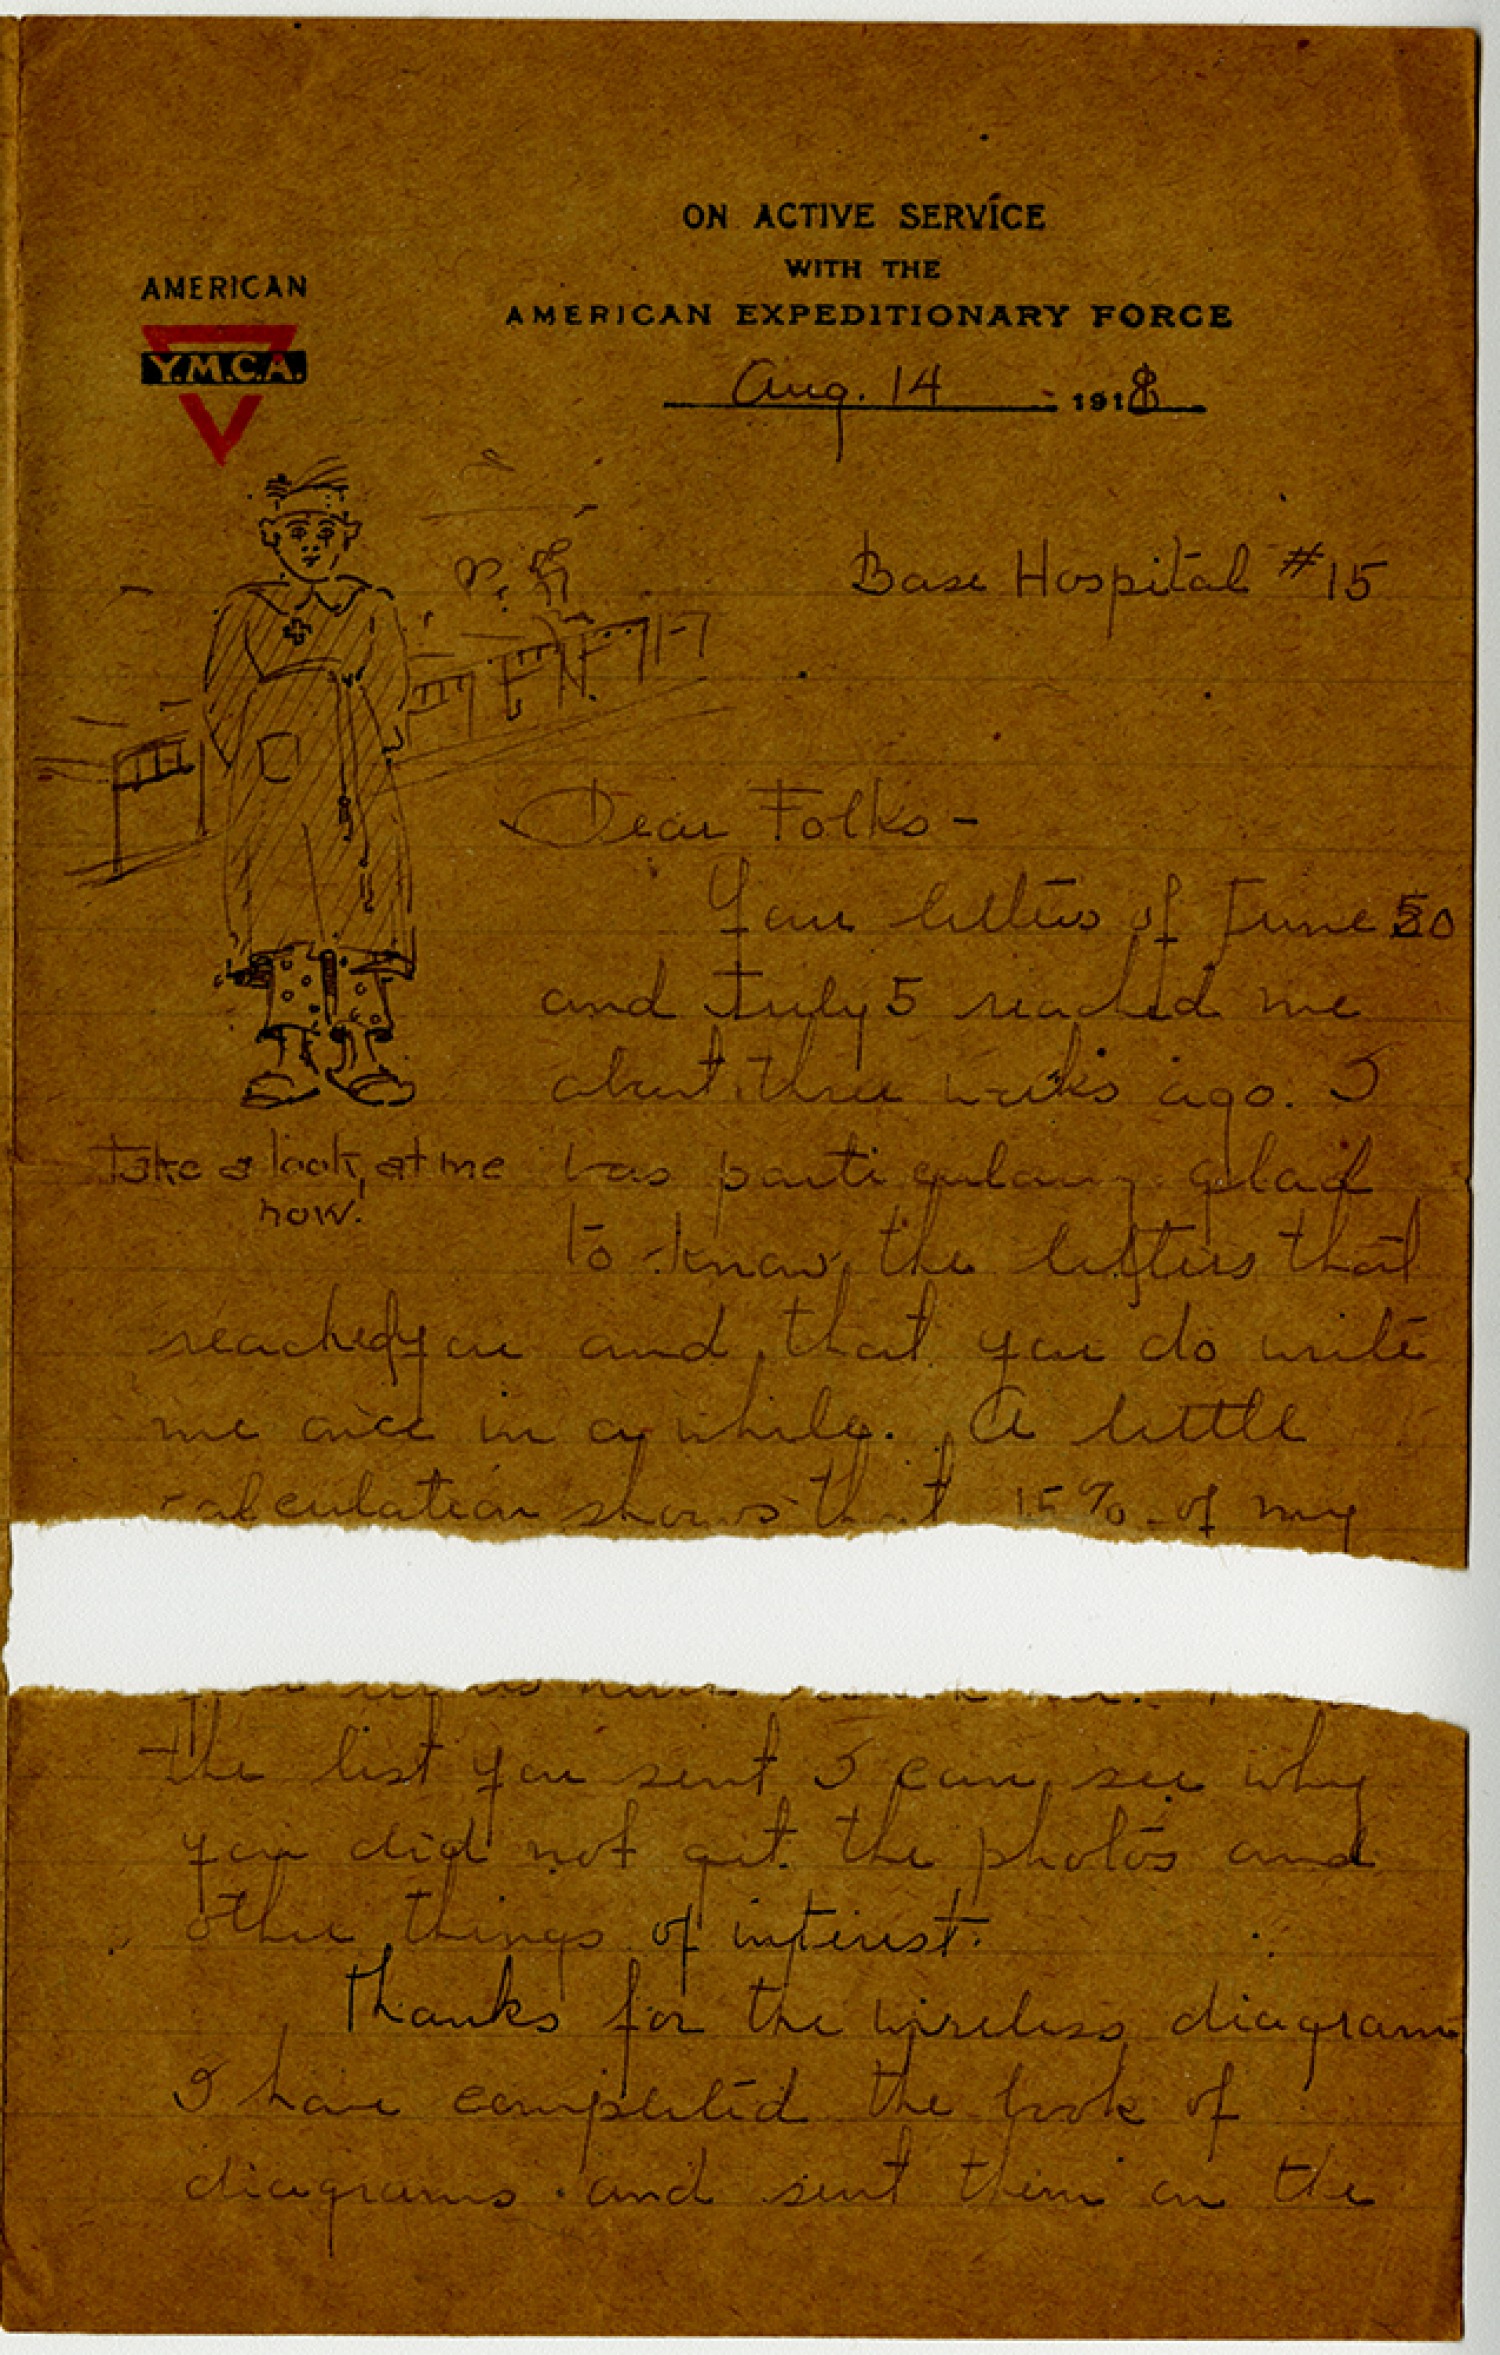 ON ACTIVE SERVICE
WITH THE
AMERICAN EXPEDITIONARY FORCE
AMERICAN
Y.M.C.A.
Aug. 14 1918
Base Hospital #15
Dear Folks -
Your letters of June 30
and July 5 reached me
about three weeks ago. I
Take a look at me
now!
was particularly glad
to know the letters that
reached you and that you do write
me once in a while. A little
calculation shows that 15% of my
the list you sent I can see why
you did not get the photos and
other things of interest.
Thanks for the wireless diagrams
I have completed the book of
diagrams and sent them on the